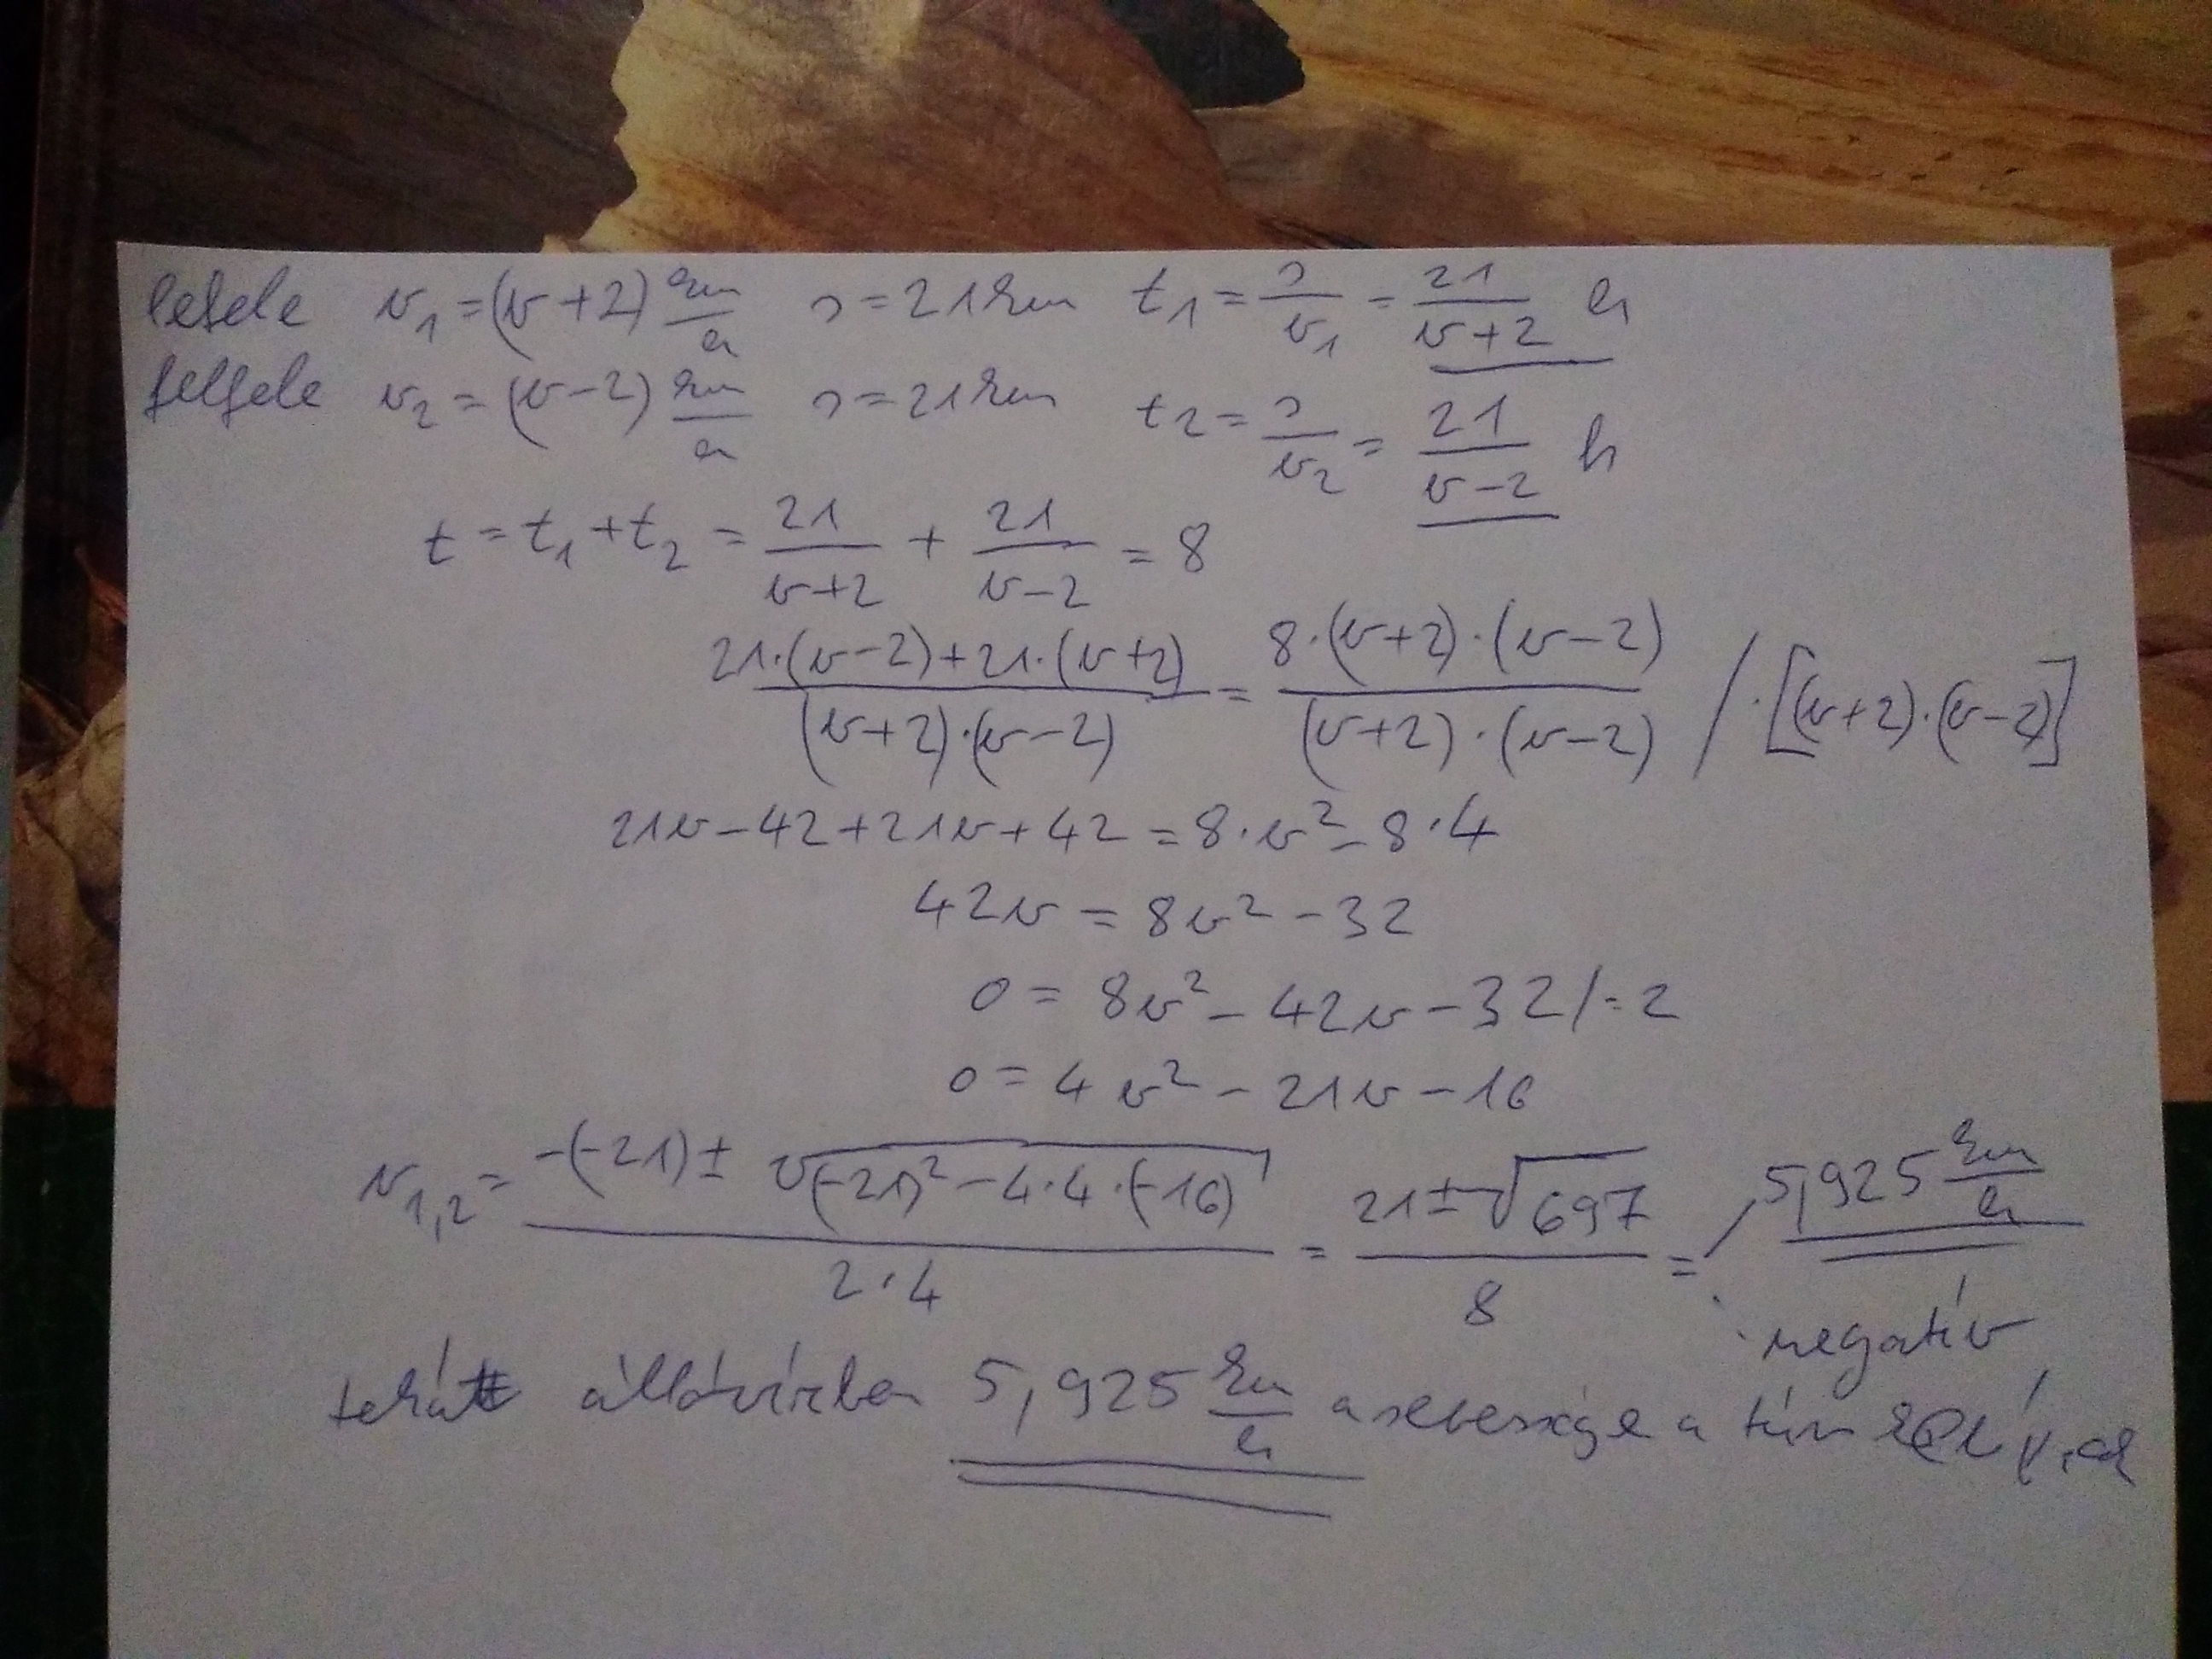 lefele v₁=(v+2) km/h s=21km t₁= s/v₁ = 21/(v+2) h
felfele v₂=(v-2) km/h s=21km t₂= s/v₂ = 21/(v-2) h
t=t₁+t₂ = 21/(v+2) + 21/(v-2) = 8
(21·(v-2)+21·(v+2))/((v+2)·(v-2)) = (8·(v+2)·(v-2))/((v+2)·(v-2)) /·[(v+2)·(v-2)]
21v-42+21v+42=8·v²-8·4
42v=8v²-32
0=8v²-42v-32/:2
0=4v²-21v-16
v₁,₂= (-(-21)±√((-21)²-4·4·(-16)))/(2·4) = (21±√697)/8 = 5,925 km/h
negatív
tehát állóvízben 5,925 km/h a sebessége a